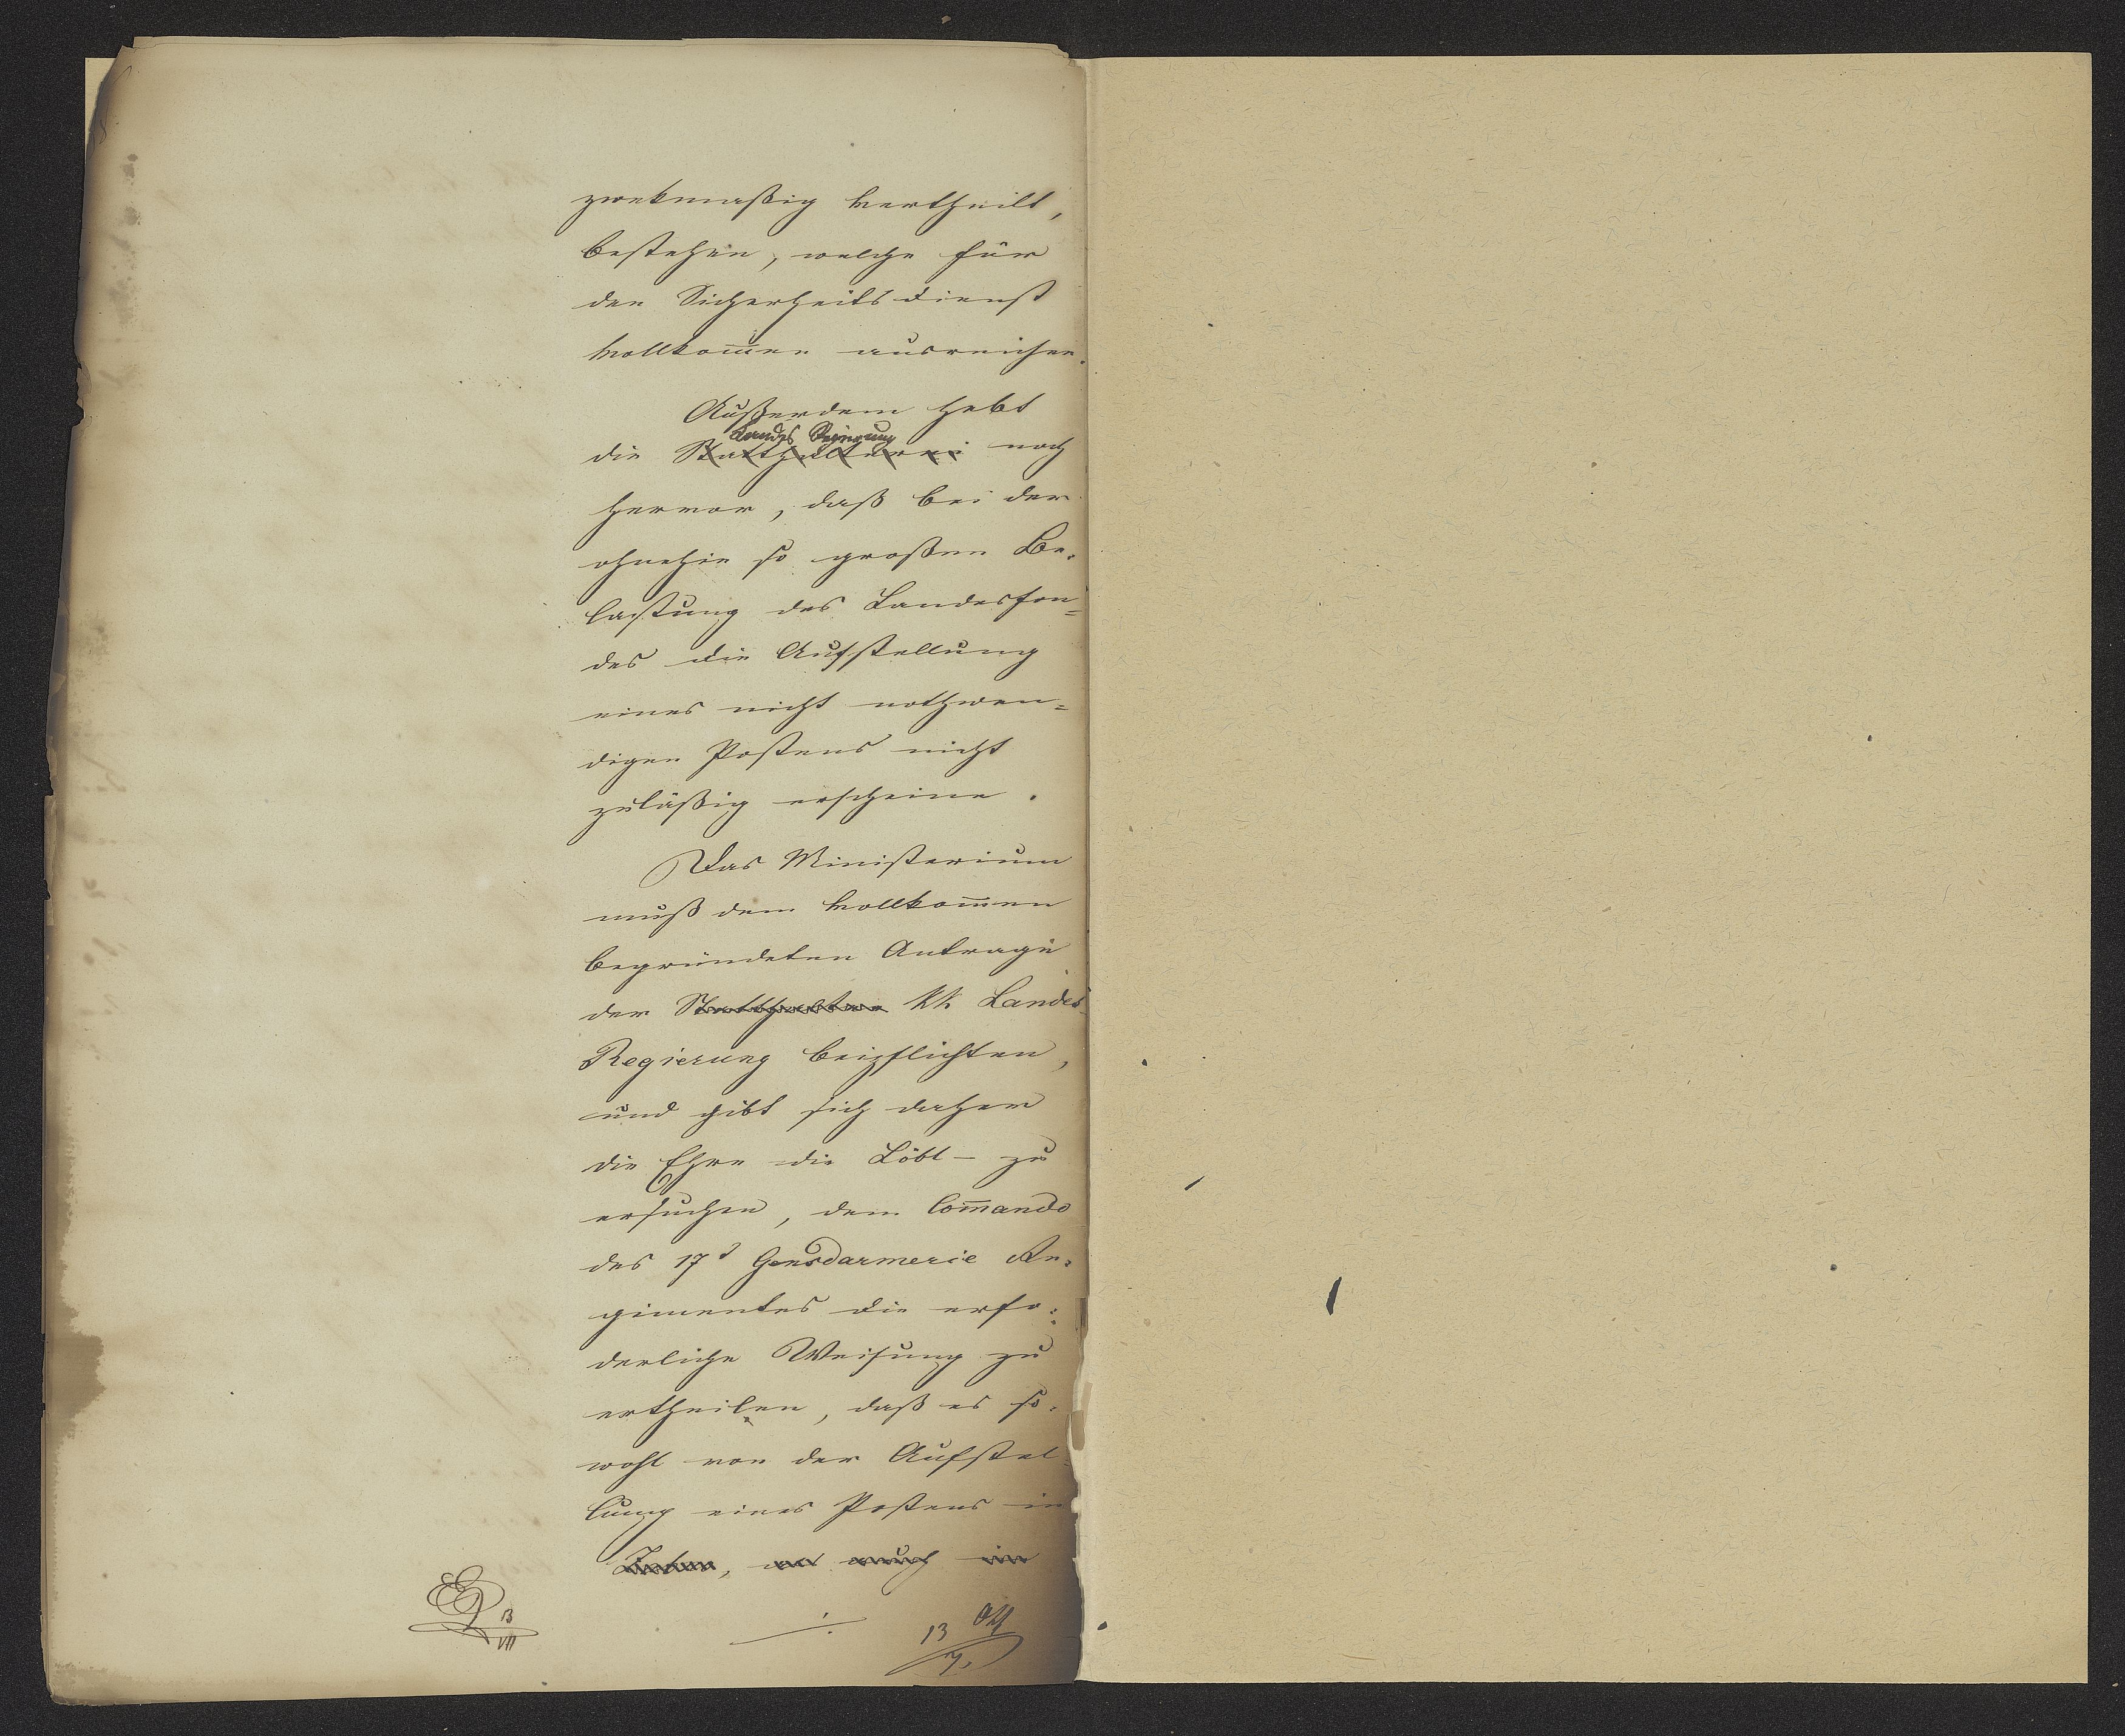 zwekmaßig vertheilt,
bestehen, welche für
den Sicherheitsdienst
vollkom̄en ausreichen.
Außerdem hebt
Landes Regierung
die Statthalterei noch
hervor, daß bei der
ohnehin so großen Be-
lastung des Landesfon=
des die Aufstellung
eines nicht nothwen=
digen Postens nicht
zuläßig erscheine.
Das Ministerium
muß dem vollkom̄en
begründeten Antrage
der Statthalterei kk Landes
Regierung beipflichten,
und gibt sich daher
die Ehre die Löbl- zu
ersuchen, dem Com̄ando
des 17t Gensdarmerie Re-
gimentes die erfo:
derliche Weisung zu
ertheilen, daß es so-
wohl von der Aufstel-
lung eines Postens in
auch in
13
VII
./.
13
7.